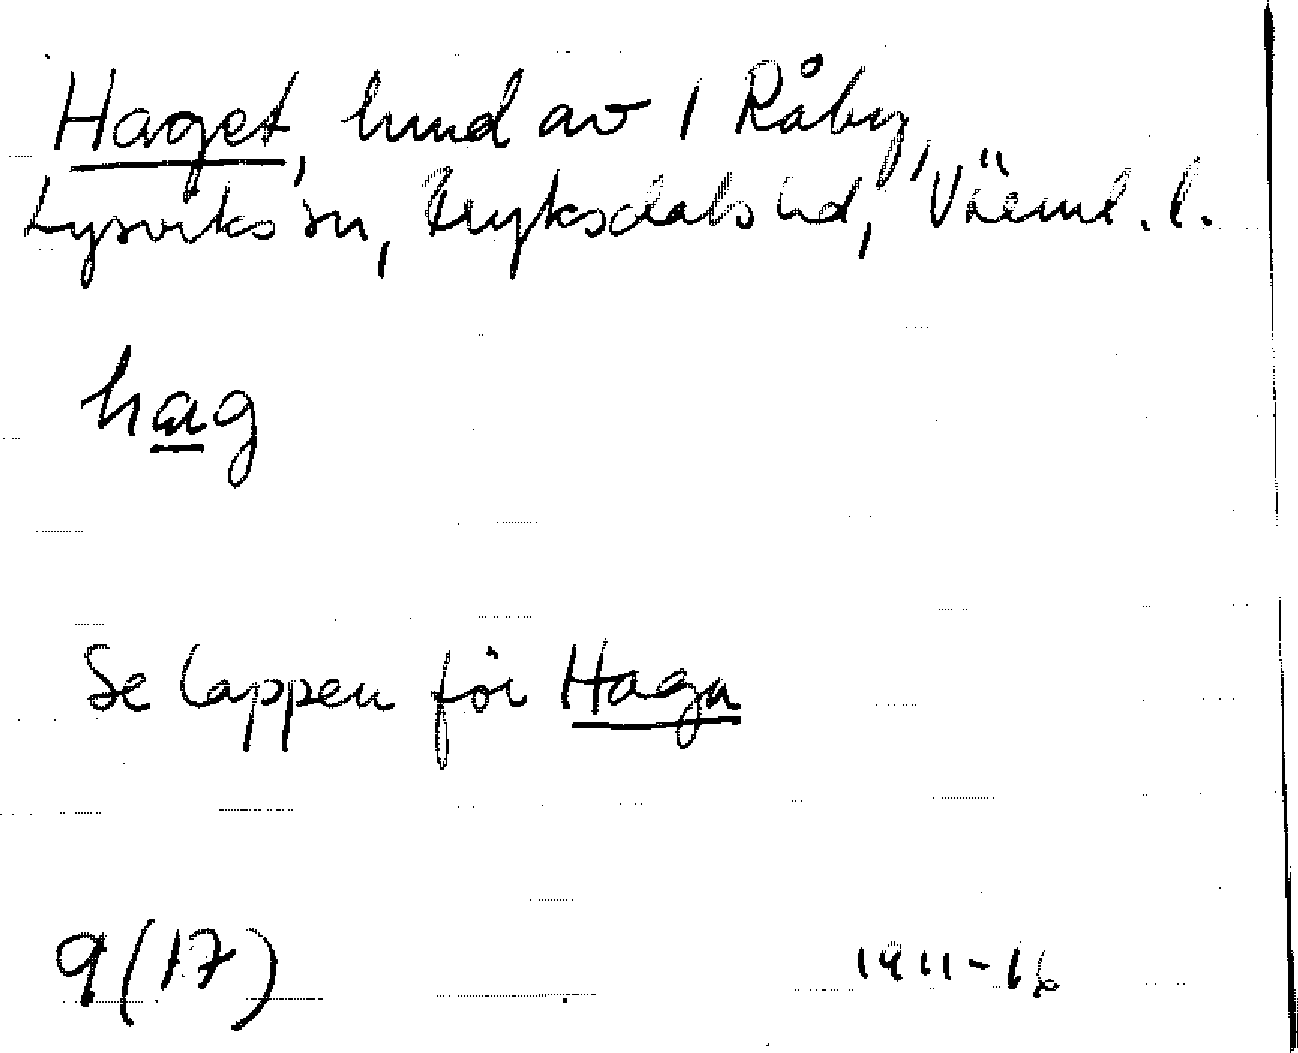 Haget, hmd av 1 Råby,
Lysviks sn, Fryksdals hd, Värml. l.
hag
Se lappen för Haga
9(17)
1911-16